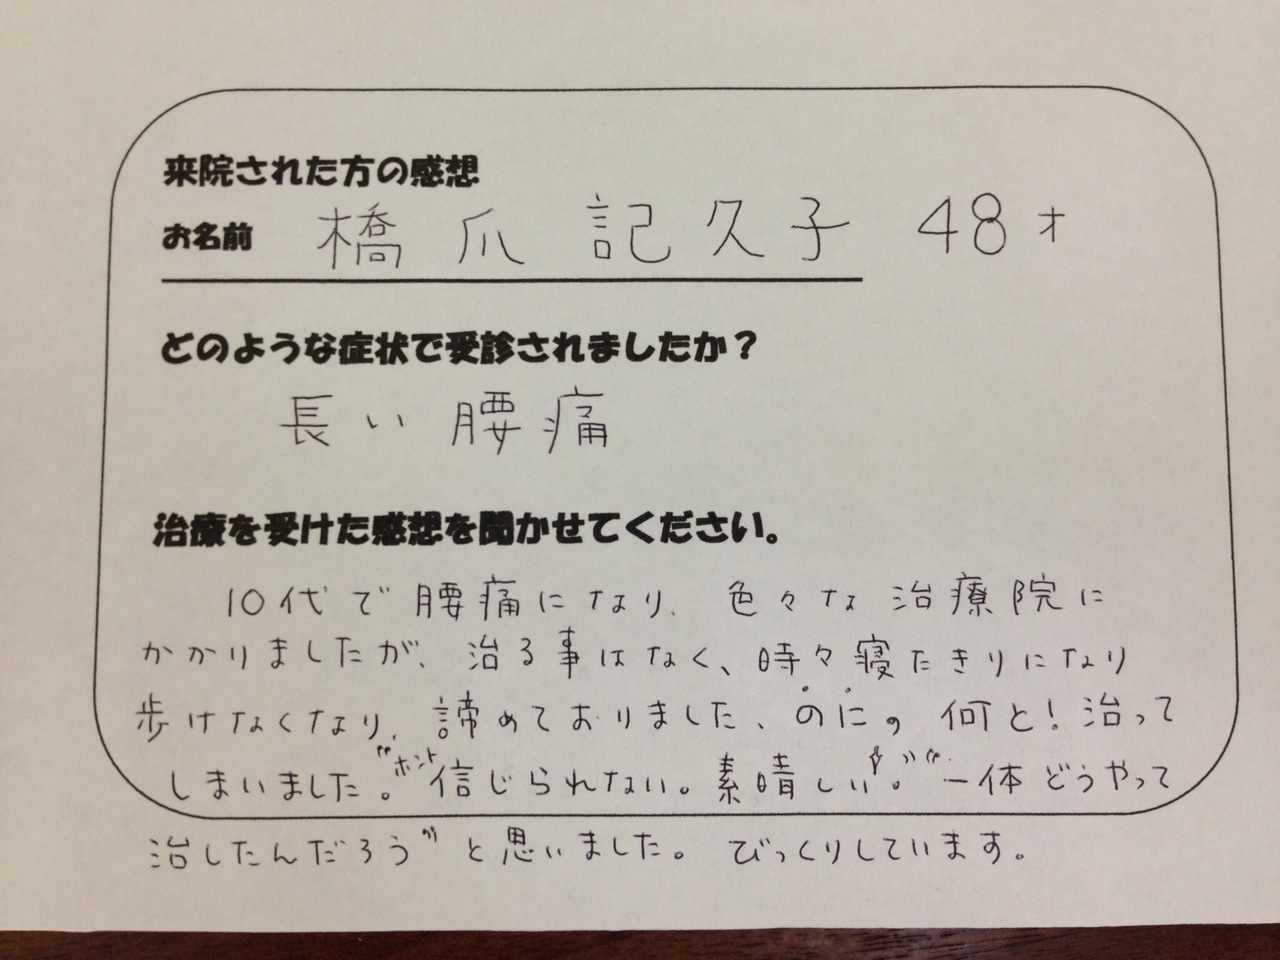 来院された方の感想
お名前 橋爪 記久子 48才
どのような症状で受診されましたか？
長い腰痛
治療を受けた感想を聞かせてください。
10代で腰痛になり、色々な治療院に
かかりましたが、治る事はなく、時々寝たきりになり
歩けなくなり、諦めておりました、のに。何と！治って
しまいました。“ホント信じられない。素晴しい！。”“一体どうやって
治したんだろう”と思いました。びっくりしています。